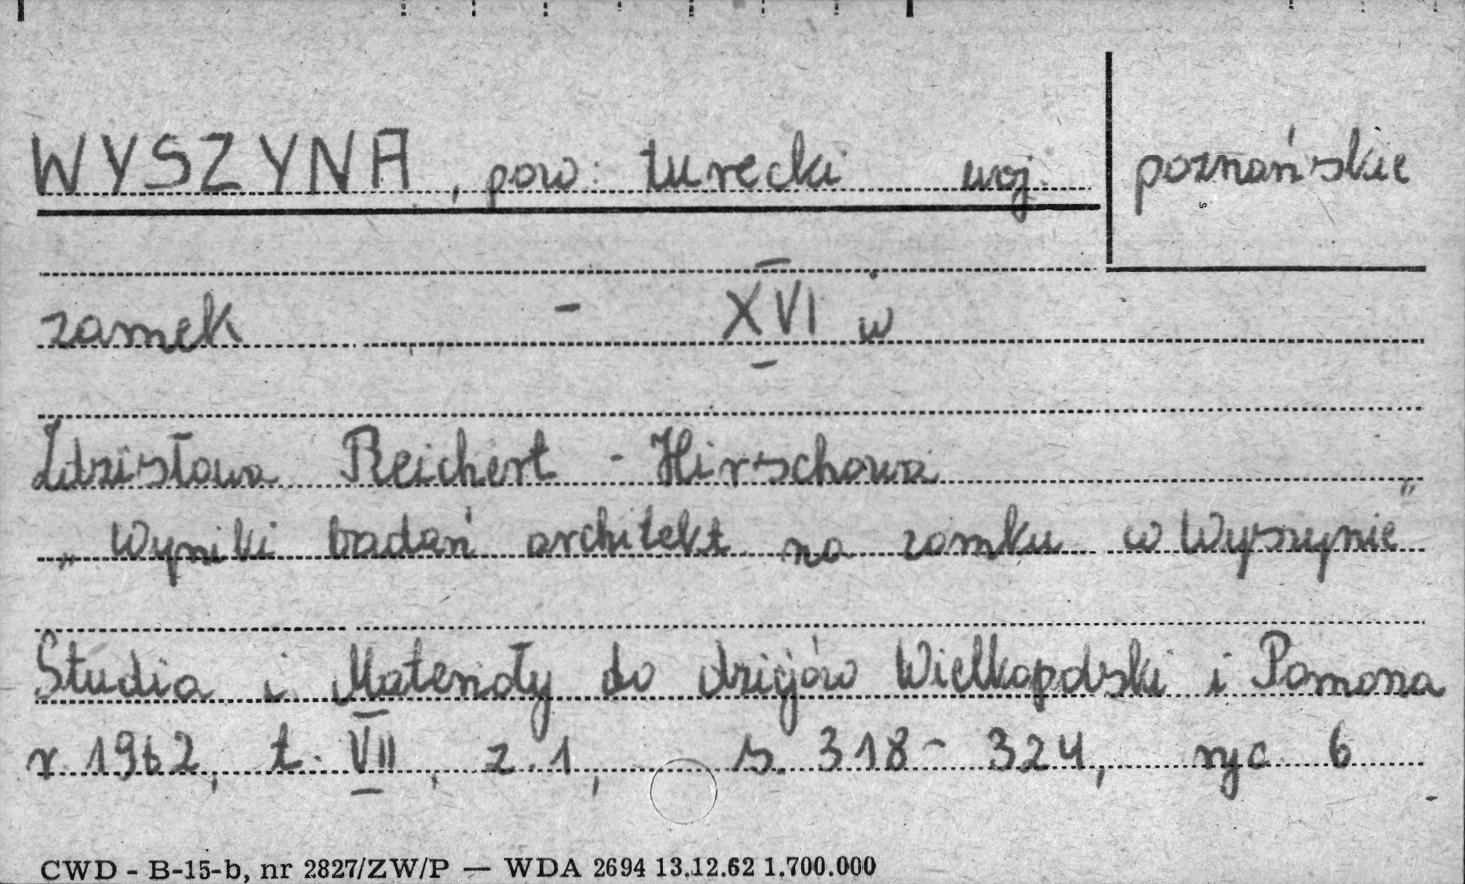 WYSZYNA, pow: turecki woj. poznańskie
zamek - XVI w
Zdzisława Reichert - Hirschowa
„Wyniki badań architekt na zamku w Wyszynie"
Studia i Materiały do dziejów Wielkopolski i Pomorza
r 1962, t. VII, z.1, s. 318-324, ryc 6
CWD - B-15-b, nr 2827/ZW/P — WDA 2694 13.12.62 1.700.000